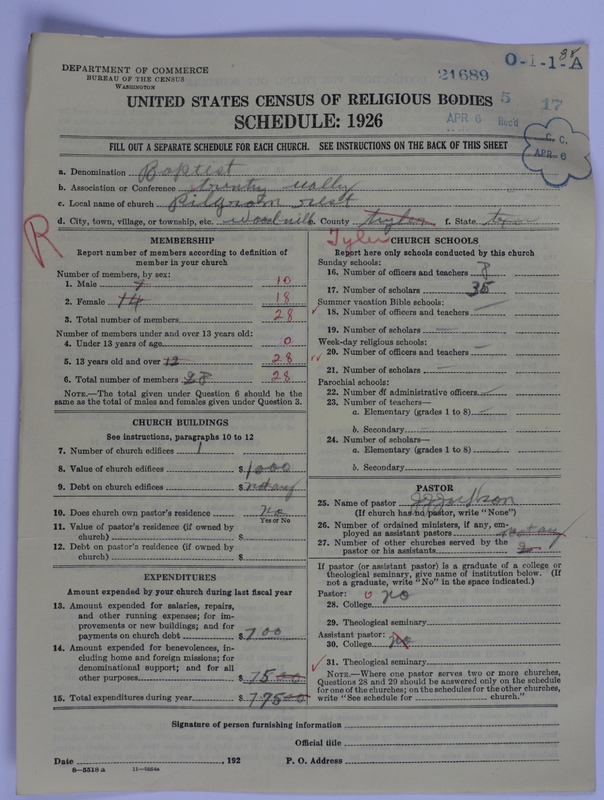 DEPARTMENT OF COMMERCE
BUREAU OF THE CENSUS
WASHINGTON
21689
O-1-1-A
38
UNITED STATES CENSUS OF RELIGIOUS BODIES
5 17
SCHEDULE: 1926
APR 6 Rec'd
C. C.
APR 6
FILL OUT A SEPARATE SCHEDULE FOR EACH CHURCH. SEE INSTRUCTIONS ON THE BACK OF THIS SHEET
a. Denomination Baptist
b. Association or Conference trinty vally
c. Local name of church Pilgrom rest
d. City, town, village, or township, etc. Woodville e. County f. State
R
Tyler
MEMBERSHIP
Report number of members according to definition of
member in your church
Number of members, by sex:
1. Male 10
2. Female 14 18
3. Total number of members 28
Number of members under and over 13 years old:
4. Under 13 years of age 0
5. 13 years old and over 12 28
6. Total number of members 28 28
NOTE.—The total given under Question 6 should be
same as the total of males and females given under Question 3.
CHURCH BUILDINGS
See instructions, paragraphs 10 to 12
7. Number of church edifices 1
8. Value of church edifices $1000
9. Debt on church edifices $not any
10. Does church own pastor's residence no
Yes or No
11. Value of pastor's residence (if owned by
church) $
12. Debt on pastor's residence (if owned by
church) $
EXPENDITURES
Amount expended by your church during last fiscal year
13. Amount expended for salaries, repairs,
and other running expenses; for im-
provements or new buildings; and for
payments on church debt $
14. Amount expended for benevolences, in-
cluding home and foreign missions; for
denominational support; and for all
other purposes $7500
15. Total expenditures during year $
CHURCH SCHOOLS
Report here only schools conducted by this church
Sunday schools:
16. Number of officers and teachers 8
17. Number of scholars 35
Summer vacation Bible schools:
18. Number of officers and teachers
19. Number of scholars
Week-day religious schools:
20. Number of officers and teachers
21. Number of scholars
Parochial schools:
22. Number of administrative officers
23. Number of teachers—
a. Elementary (grades 1 to 8)
b. Secondary
24. Number of scholars—
a. Elementary (grades 1 to 8)
b. Secondary
PASTOR
25. Name of pastor Jackson
(If church has no pastor, write "None")
26. Number of ordained ministers, if any, em-
ployed as assistant pastors not any
27. Number of other churches served by the
pastor or his assistants 2
If pastor (or assistant pastor) is a graduate of a college or
theological seminary, give name of institution below. (If
not a graduate, write "No" in the space indicated.)
Pastor: 0 no
28. College
29. Theological seminary
Assistant pastor:
30. College no
31. Theological seminary
NOTE.—Where one pastor serves two or more churches,
Questions 28 and 29 should be answered only on the schedule
for one of the churches; on the schedules for the other churches,
write "See schedule for church."
Signature of person furnishing information
Official title
Date , 192 P. O. Address
8—5518 a 11—9264a